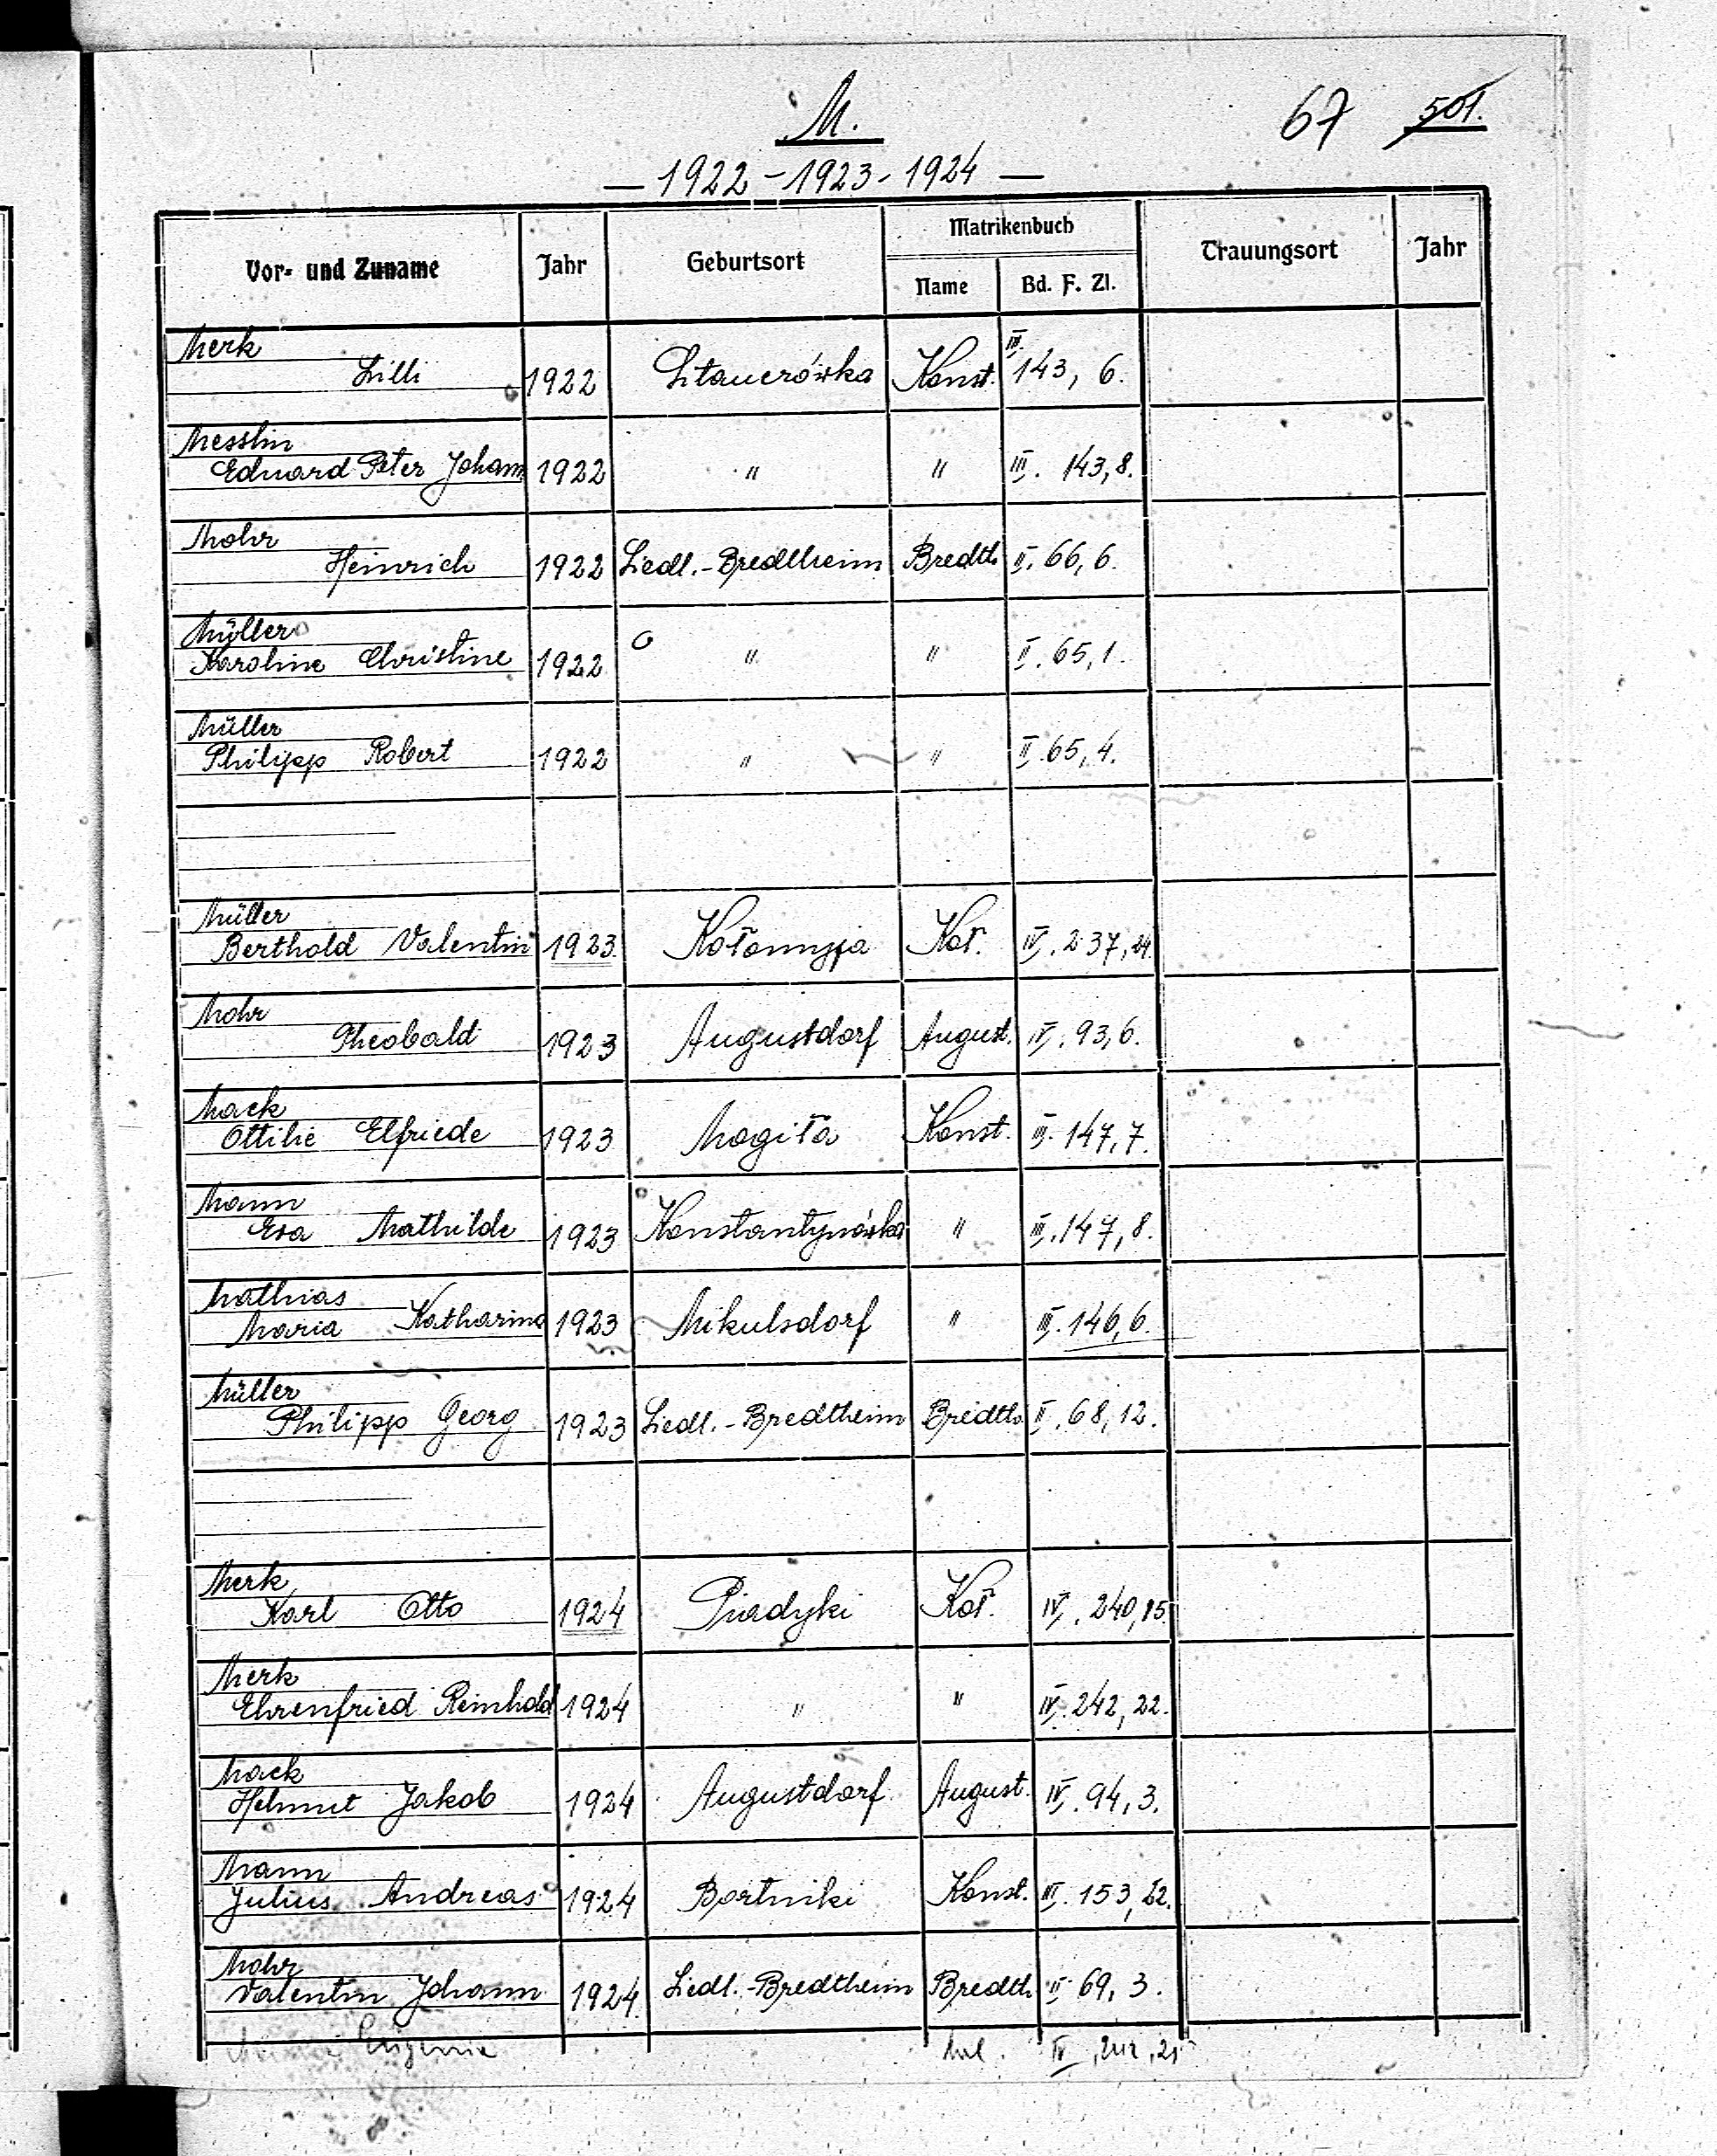 M.
67 501.
— 1922 - 1923 - 1924 —
Vor- und Zuname Jahr Geburtsort Matrikenbuch Trauungsort Jahr
Name Bd. F. Zl.
Merk
Lilli 1922 Sitauerówka Konst. III. 143, 6.
Messlin
Eduard Peter Johann 1922 " " III. 143, 8.
Mohr
Heinrich 1922 Siedl.-Bredtheim Bredth. II. 66, 6.
Müller
Karoline Christine 1922 " " II. 65, 1.
Müller
Philipp Robert 1922 " " II. 65, 4.
Müller
Berthold Valentin 1923. Kołomyja Koł. IV. 237, 24.
Mohr
Theobald 1923 Augustdorf August. IV. 93, 6.
Mack
Ottilie Elfriede 1923 Mogiła Konst. III. 147, 7.
Mann
Eva Mathilde 1923 Konstantynówka " III. 147, 8.
Mathias
Maria Katharina 1923 Mikulsdorf " III. 146, 6.
Müller
Philipp Georg 1923 Siedl.-Bredtheim Bredth. II. 68, 12.
Merk
Karl Otto 1924 Piadyki Koł. IV. 240, 15.
Merk
Ehrenfried Reinhold 1924 " " IV. 242, 22.
Mack
Helmut Jakob 1924 Augustdorf August. IV. 94, 3.
Mann
Julius Andreas 1924 Bortniki Konst. III. 153, 22.
Mohr
Valentin Johann 1924 Siedl.-Bredtheim Bredth. II. 69, 3.
Eugenie IV